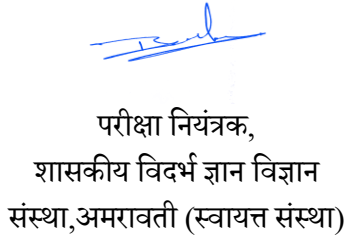 परीक्षा नियंत्रक,
शासकीय विदर्भ ज्ञान विज्ञान
संस्था,अमरावती (स्वायत्त संस्था)